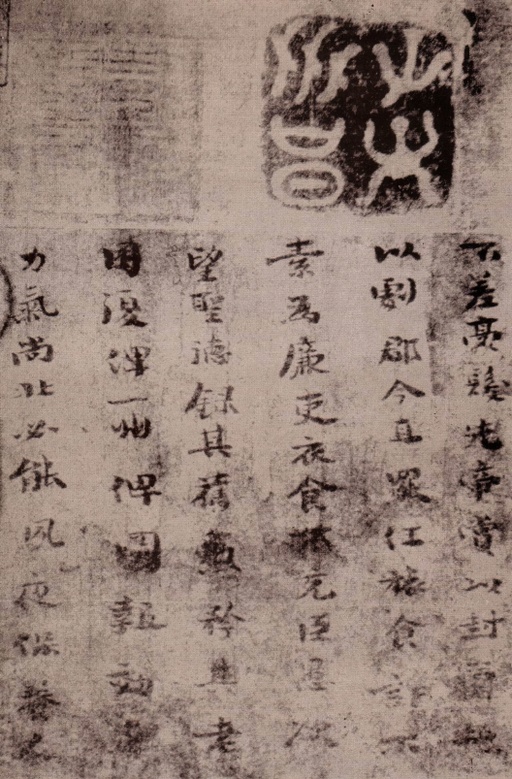 不差豪髮先帝賞以封爵授
以劇郡今直罷任旅食許下
素為廉吏衣食不充臣愚欲
望聖德錄其舊勳矜其老
困復俾一州俾圖報效直
力氣尚壯必能夙夜保養人